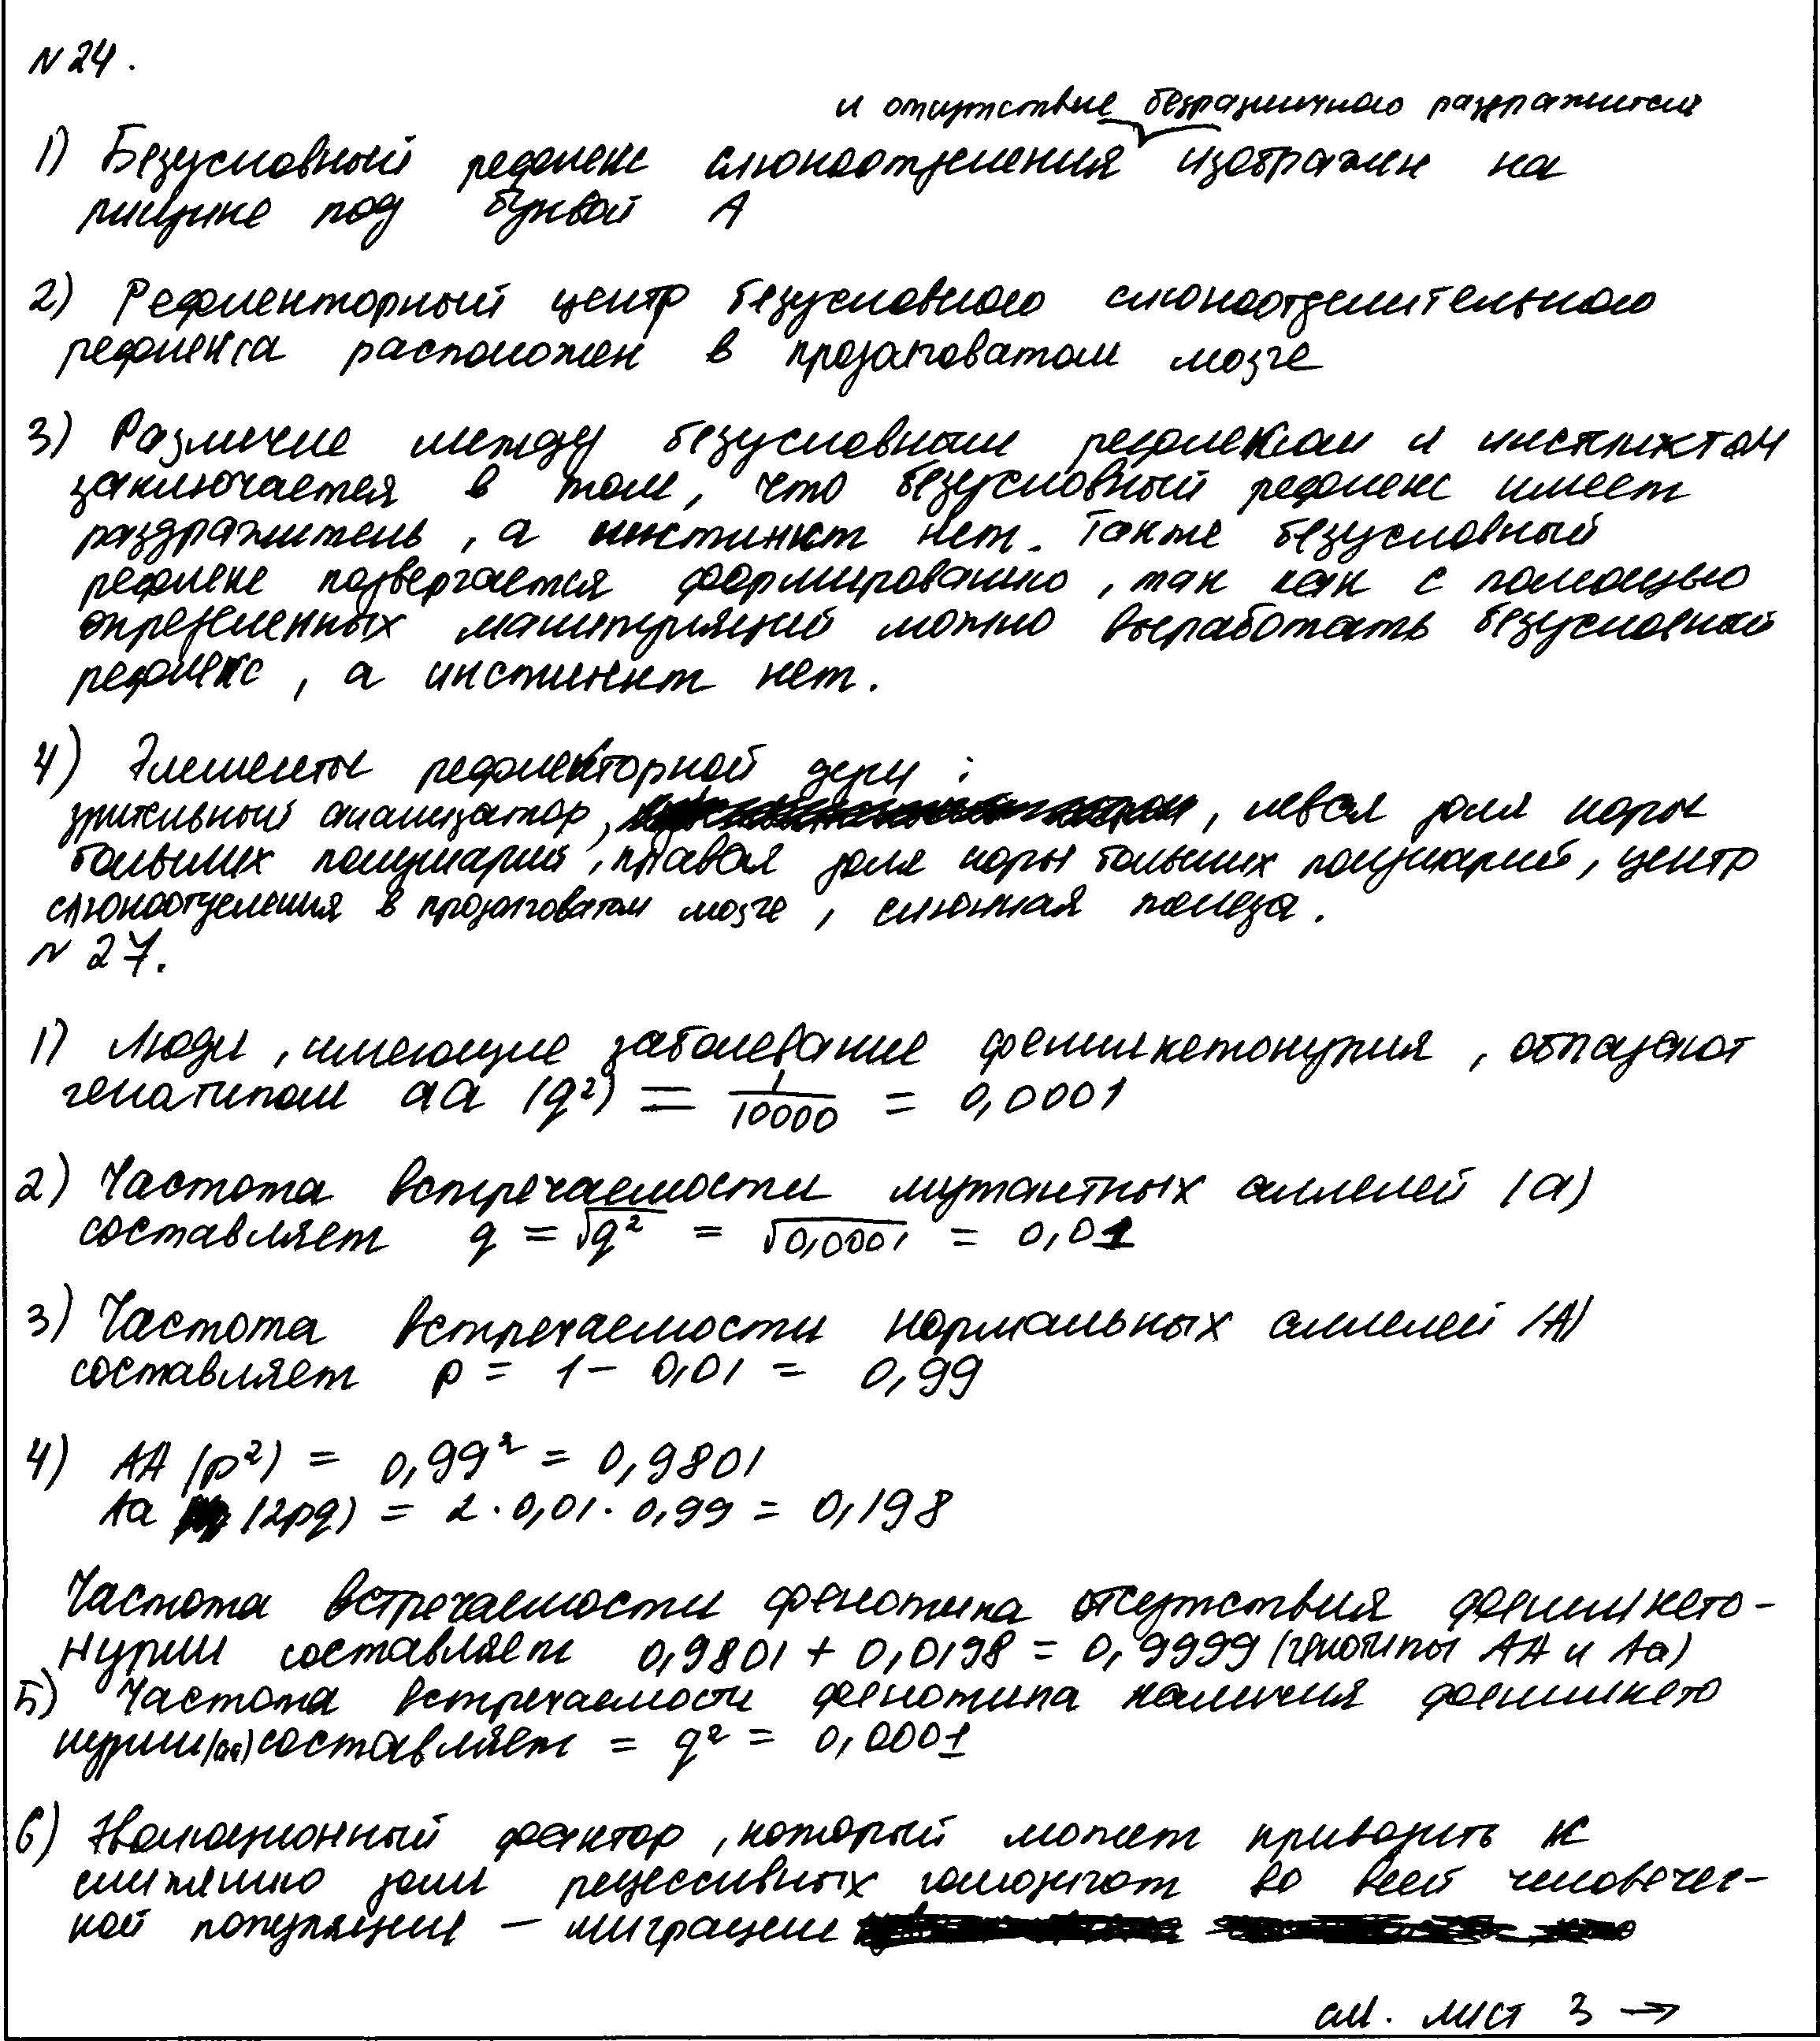 N 24.
и отсутствие безразличного раздражителя
1) Безусловный рефлекс слюноотделения изображен на
рисунке под буквой А
2) Рефлекторный центр безусловного слюноотделительного
рефлекса расположен в продолговатом мозге
3) Различие между безусловным рефлексом и инстинктом
заключается в том, что безусловный рефлекс имеет
раздражитель, а инстинкт нет. Также безусловный
рефлекс подвергается формированию, так как с помощью
определенных манипуляций можно выработать безусловный
рефлекс, а инстинкт нет.
4) Элементы рефлекторной дуги:
зрительный анализатор, , левая доля коры
больших полушарий, правая доля коры больших полушарий, центр
слюноотделения в продолговатом мозге, слюнная железа.
N 27.
1) Люди, имеющие заболевание фенилкетонурия, обладают
генотипом aa (q²) = 1/10000 = 0,0001
2) Частота встречаемости мутантных аллелей (a)
составляет q = √q² = √0,0001 = 0,01
3) Частота встречаемости нормальных аллелей (A)
составляет p = 1 - 0,01 = 0,99
4) AA (p²) = 0,99² = 0,9801
Aa (2pq) = 2 · 0,01 · 0,99 = 0,198
Частота встречаемости фенотипа отсутствия фенилкето-
нурии составляет 0,9801 + 0,0198 = 0,9999 (генотипы AA и Aa)
5) Частота встречаемости фенотипа наличия фенилкето
нурии (aa) составляет = q² = 0,0001
6) Эволюционный фактор, который может приводить к
снижению доли рецессивных гомозигот во всей человечес-
кой популяции — миграции
см. лист 3 →